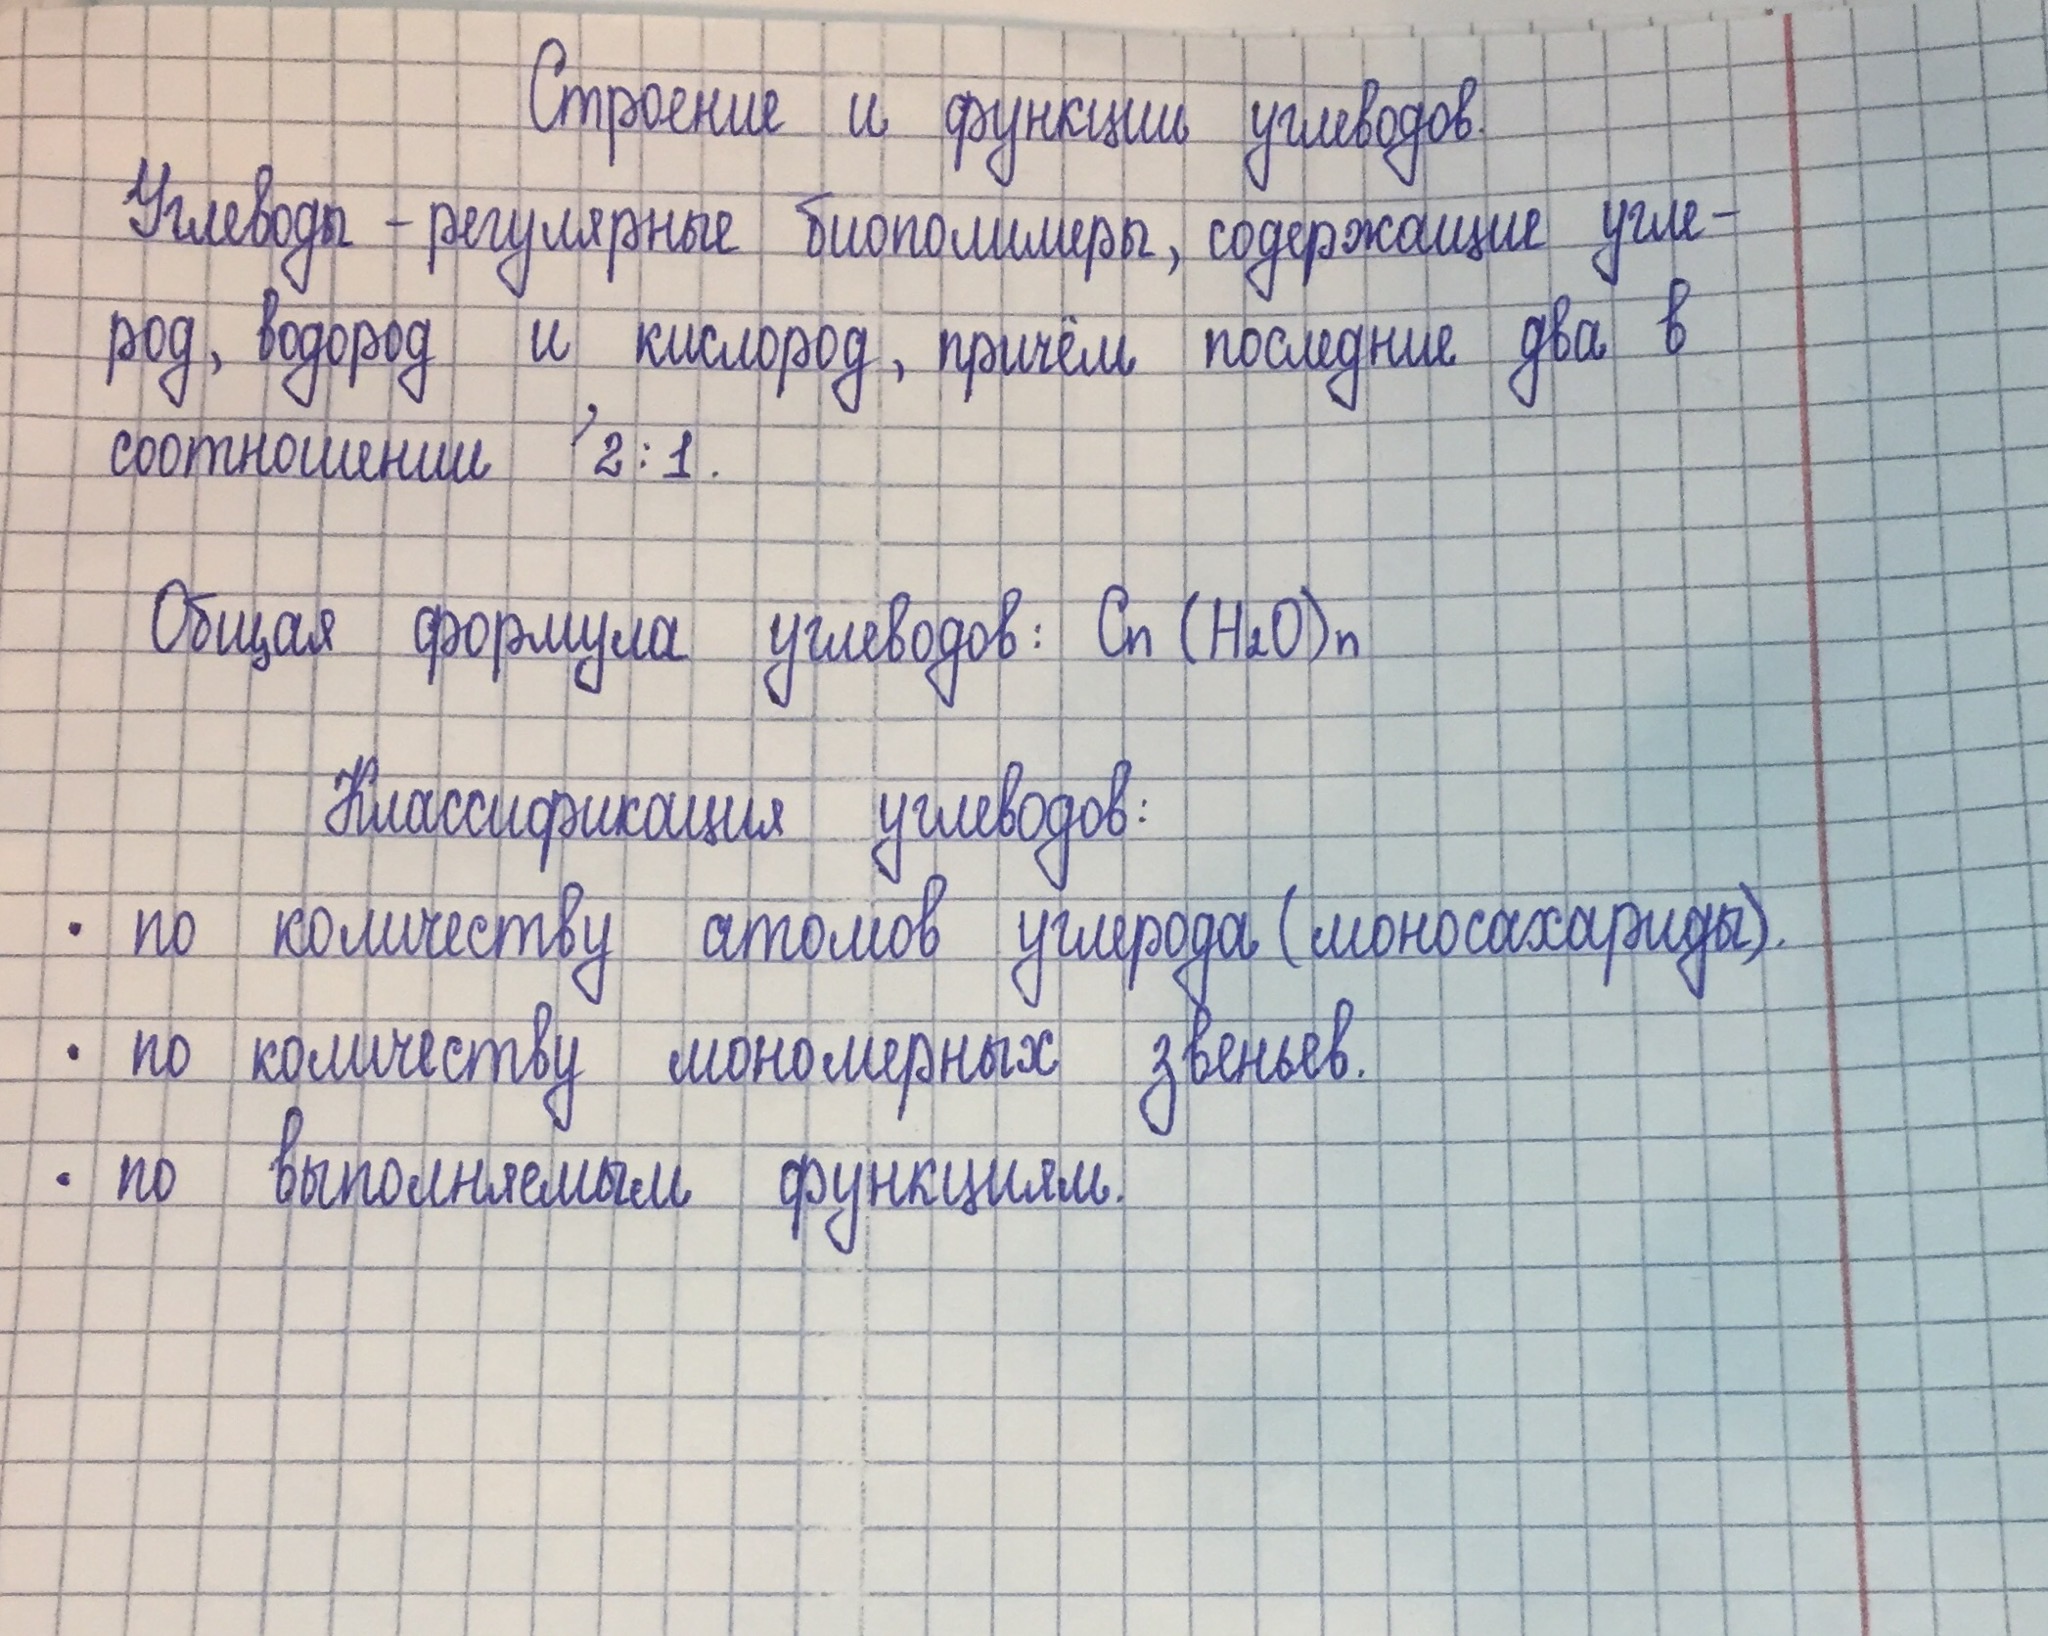 Строение и функции углеводов.
Углеводы - регулярные биополимеры, содержащие угле-
род, водород и кислород, причём последние два в
соотношении 2:1.
Общая формула углеводов: Cn (H2O)n
Классификация углеводов:
· по количеству атомов углерода (моносахариды).
· по количеству мономерных звеньев.
· по выполняемым функциям.